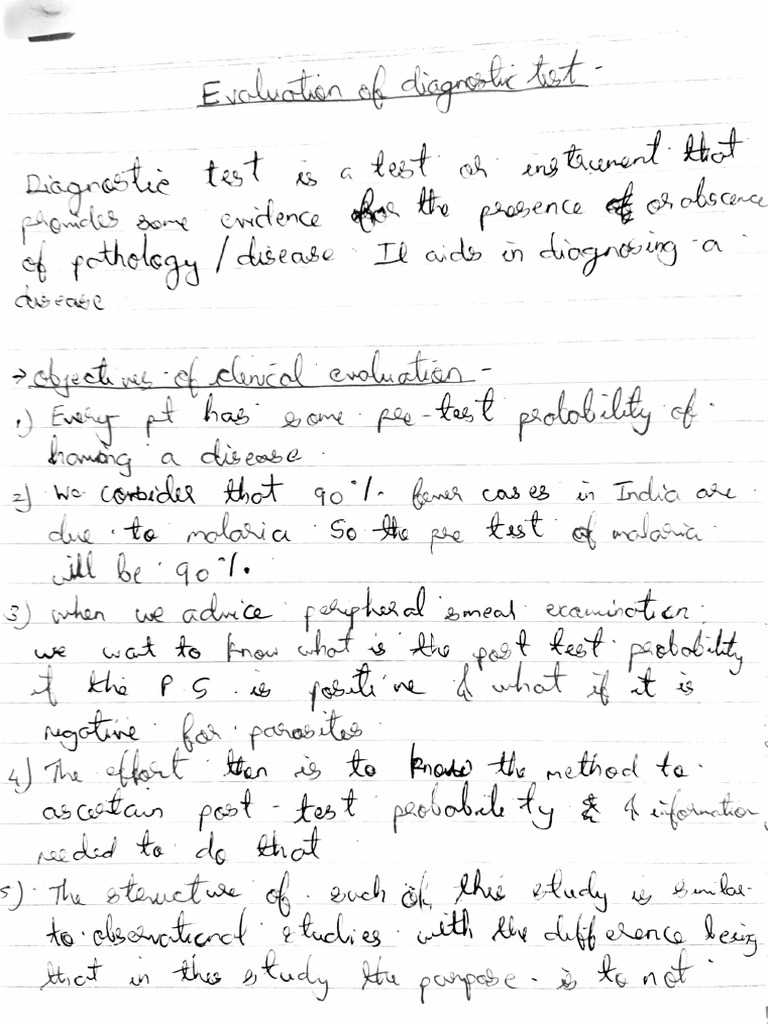 Evaluation of diagnostic test -
Diagnostic test is a test or instrument that
provides some evidence for the presence or abscence
of pathology / disease. It aids in diagnosing a
disease
→ objectives of clenical evaluation -
1) Every pt has some pre-test probability of
having a disease.
2) We consider that 90% fever cases in India are
due to malaria so the pre test of malaria
will be 90%.
3) when we advice peripheral smear examination
we wat to know what is the post test probability
if the P S is positive & what if it is
negative for parasites
4) The effort then is to know the method to
ascertain post-test probability & information
needed to do that
5) The structure of such of this study is similar
to observational studies with the difference being
that in this study the purpose is to not